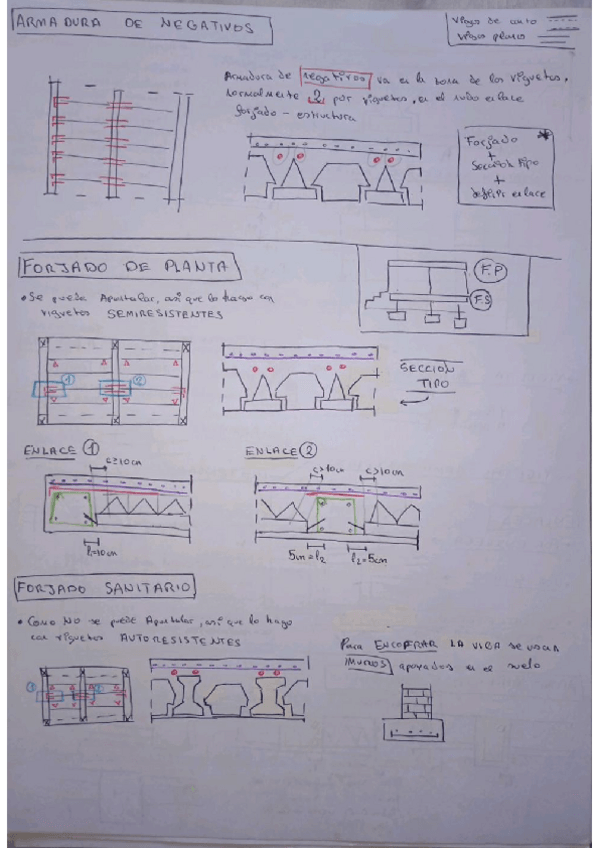 ARMADURA DE NEGATIVOS
Vigas de canto
Vigas planas
Armadura de negativos va en la zona de las viguetas,
normalmente 2 por viguetas, en el nudo enlace
forjado - estructura
Forjado
+
Sección tipo
+
definir enlace
FORJADO DE PLANTA
• Se puede Apuntalar, así que lo hago con
viguetas SEMIRESISTENTES
F.P
F.S
1
2
SECCIÓN
TIPO
ENLACE 1
c≥10cm
l=10cm
ENLACE 2
c>10cm
c>10cm
5cm=l2
l2=5cm
FORJADO SANITARIO
• Como NO se puede Apuntalar, así que lo hago
con viguetas AUTORESISTENTES
Para ENCOFRAR LA VIGA se usan
MUROS apoyados en el suelo